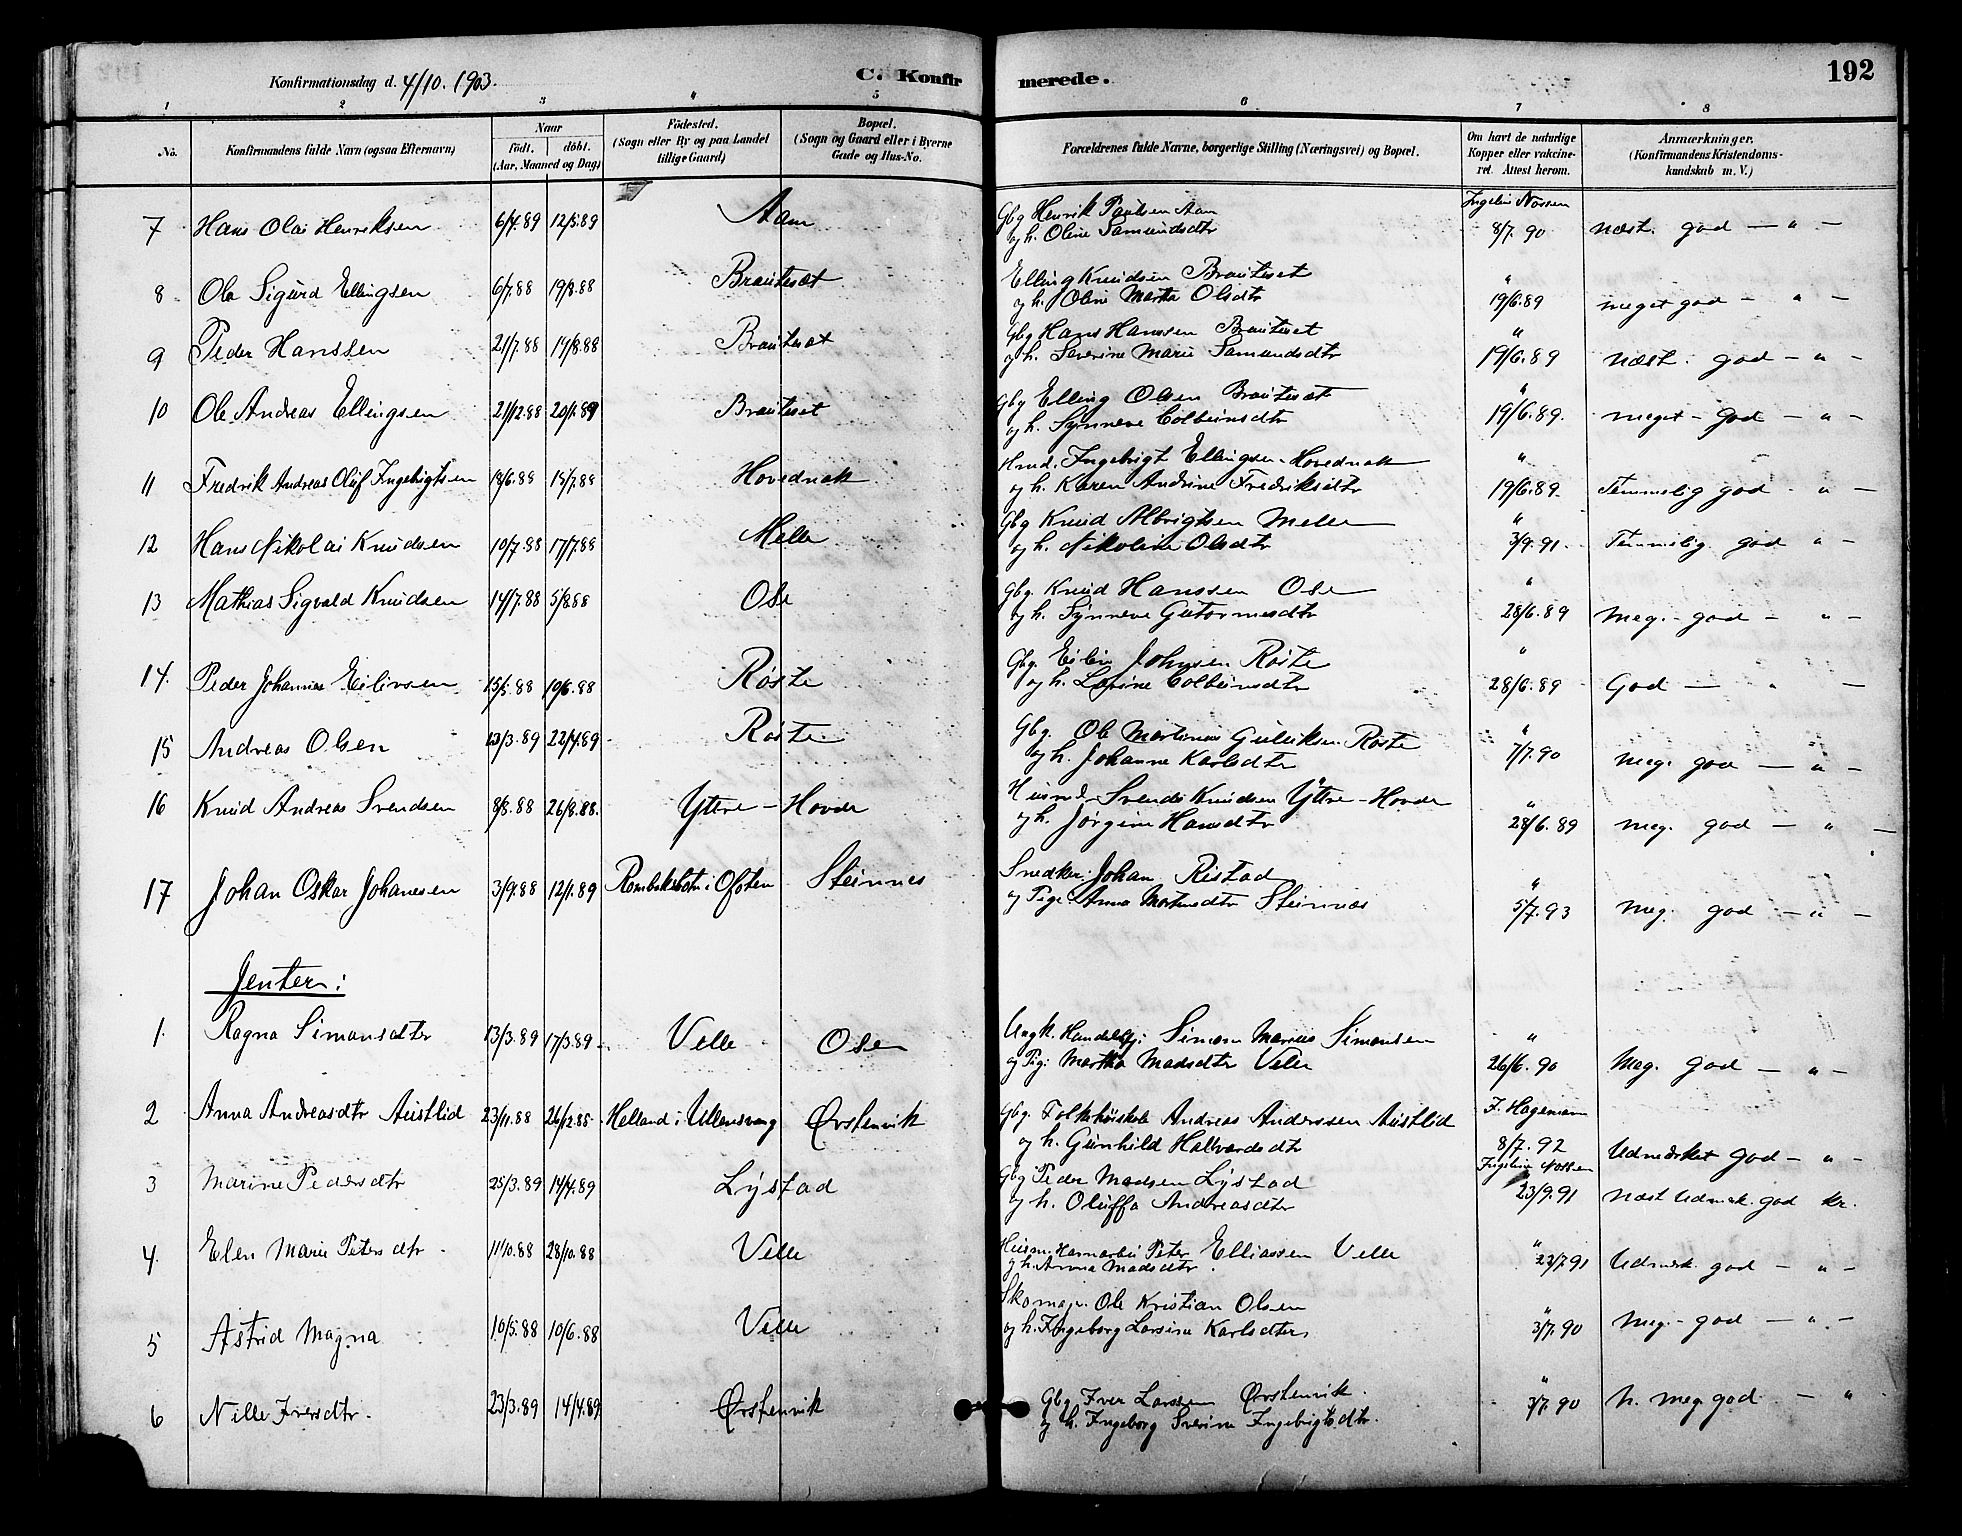 Konfirmationsdag d. 4/10. 1903.
C. Konfirmerede.
192
1 2 3 4 5 6 7 8
No.
Konfirmandens fulde Navn (ogsaa Efternavn)
Naar
födt. döbt.
(Aar, Maaned og Dag)
Födested.
(Sogn eller By og paa Landet
tillige Gaard)
Bopæl.
(Sogn og Gaard eller i Byerne
Gade og Hus-No.
Forældrenes fulde Navne, borgerlige Stilling (Næringsvei) og Bopæl.
Om havt de naturlige
Kopper eller vakcine-
ret. Attest herom.
Anmærkninger.
(Konfirmandens Kristendoms-
kundskab m. V.)
7 Hans Olai Henriksen 6/4.89 12/5.89 Aam Gbg Henrik Paulsen Aam
og h. Oline Samundsdtr Ingelin Nossen 8/7. 90 næst. god — " —
8 Ole Sigurd Ellingsen 6/7.88 19/8.88 Brauteset Elling Knudsen Brauteset
og h. Oline Marta Olsdtr " 19/6.89 meget god — " —
9 Peder Hanssen 21/7.88 14/8.88 Brauteset Gbg Hans Hanssen Brauteset
og h. Severine Marie Samundsdtr " 19/6.89 næst. god — " —
10 Ole Andreas Ellingsen 21/12.88 20/1.89 Brauteset Gbg Elling Olsen Brauteset
og h. Synneve Colbeinsdtr " 19/6.89. meget god — " —
11 Fredrik Andreas Oluf Ingebrigtsen 18/6.88 15/7.88 Hovednak Hmd. Ingebrigt Ellingsen Hovednak
og h. Karen Andrine Fredriksdtr " 19/6.89. Temmelig god " —
12 Hans Nikolai Knudsen 10/7.88 17/7.88 Melle Gbg Knud Albrigtsen Melle
og h. Nikoline Olsdtr " 3/9.91. Temmelig god " —
13 Mathias Sigvald Knudsen 14/7.88 5/8.88 Ose Gbg. Knud Hanssen Ose
og h. Synneve Gutormsdtr " 28/6.89 Meg. god — " —
14. Peder Johannes Eilivsen 15/5.88 10/6.88 Röste Gbg. Eiliv Johnsen Röste
og h. Lovine Colbeinsdtr " 28/6.89 God — " —
15 Andreas Olsen 23/3.89 22/4.89 Röste Gbg. Ole Martinus Gulliksen Röste
og h. Johanne Karlsdtr " 7/7.90 Meg. god — " —
16 Knud Andreas Svendsen 8/8.88 26/8.88. Yttre-Hovde Husmd. Svend Knudsen Yttre-Hovde
og h. Jørgine Hansdtr " 28/6.89 meg. god — " —
17 Johan Oskar Johanesen 3/9.88 12/1.89 Rombaksbotn i Ofoten Steinnes Snedker Johan Ristad
og Pige Anna Mortensdtr Steinnes " 5/7.93 meg. god — " —
Jenter:
1. Ragna Simonsdtr 13/3.89 17/3.89 Velle Ose Ungk. Handelsbj: Simon Marius Simonsen
og Pig: Martha Madsdtr Velle " 26/6.90 Meg. god — " —
2 Anna Andreasdtr Austlid 23/11.88 26/12.88 Helland i Ullensvang Ørstenvik Gbg. Folkehöiskole Andreas Anderssen Austlid
og h. Gunhild Hallvardsdtr F. Hageman 8/7.92 Udmerket god — " —
3 Marine Pedersdtr 25/3.89 14/4.89 Lystad Gbg Peder Madsen Lystad
og h. Oluffa Andreasdtr Ingelin Nossen 23/9.91 næst Udmerk. god kr.
4. Elen Marie Petersdtr. 11/10.88 28/10.88 Velle Husm. Havnarbei Peter Elliassen Velle
og h. Anna Madsdtr. " 23/7.91 Udmerk. god — " —
5 Astrid Magna 10/5.88 10/6.88 Velle Skomag. Ole Kristian Olsen
og h. Ingeborg Lovise Karlsdtr " 3/7.90 Meg. god — " —
6 Nille Iversdtr. 23/3.89 14/4.89 Ørstenvik Gbg Iver Larssen Ørstenvik.
og h. Ingeborg Severine Ingebrigtsdtr. " 3/7.90 n. meg. god — "